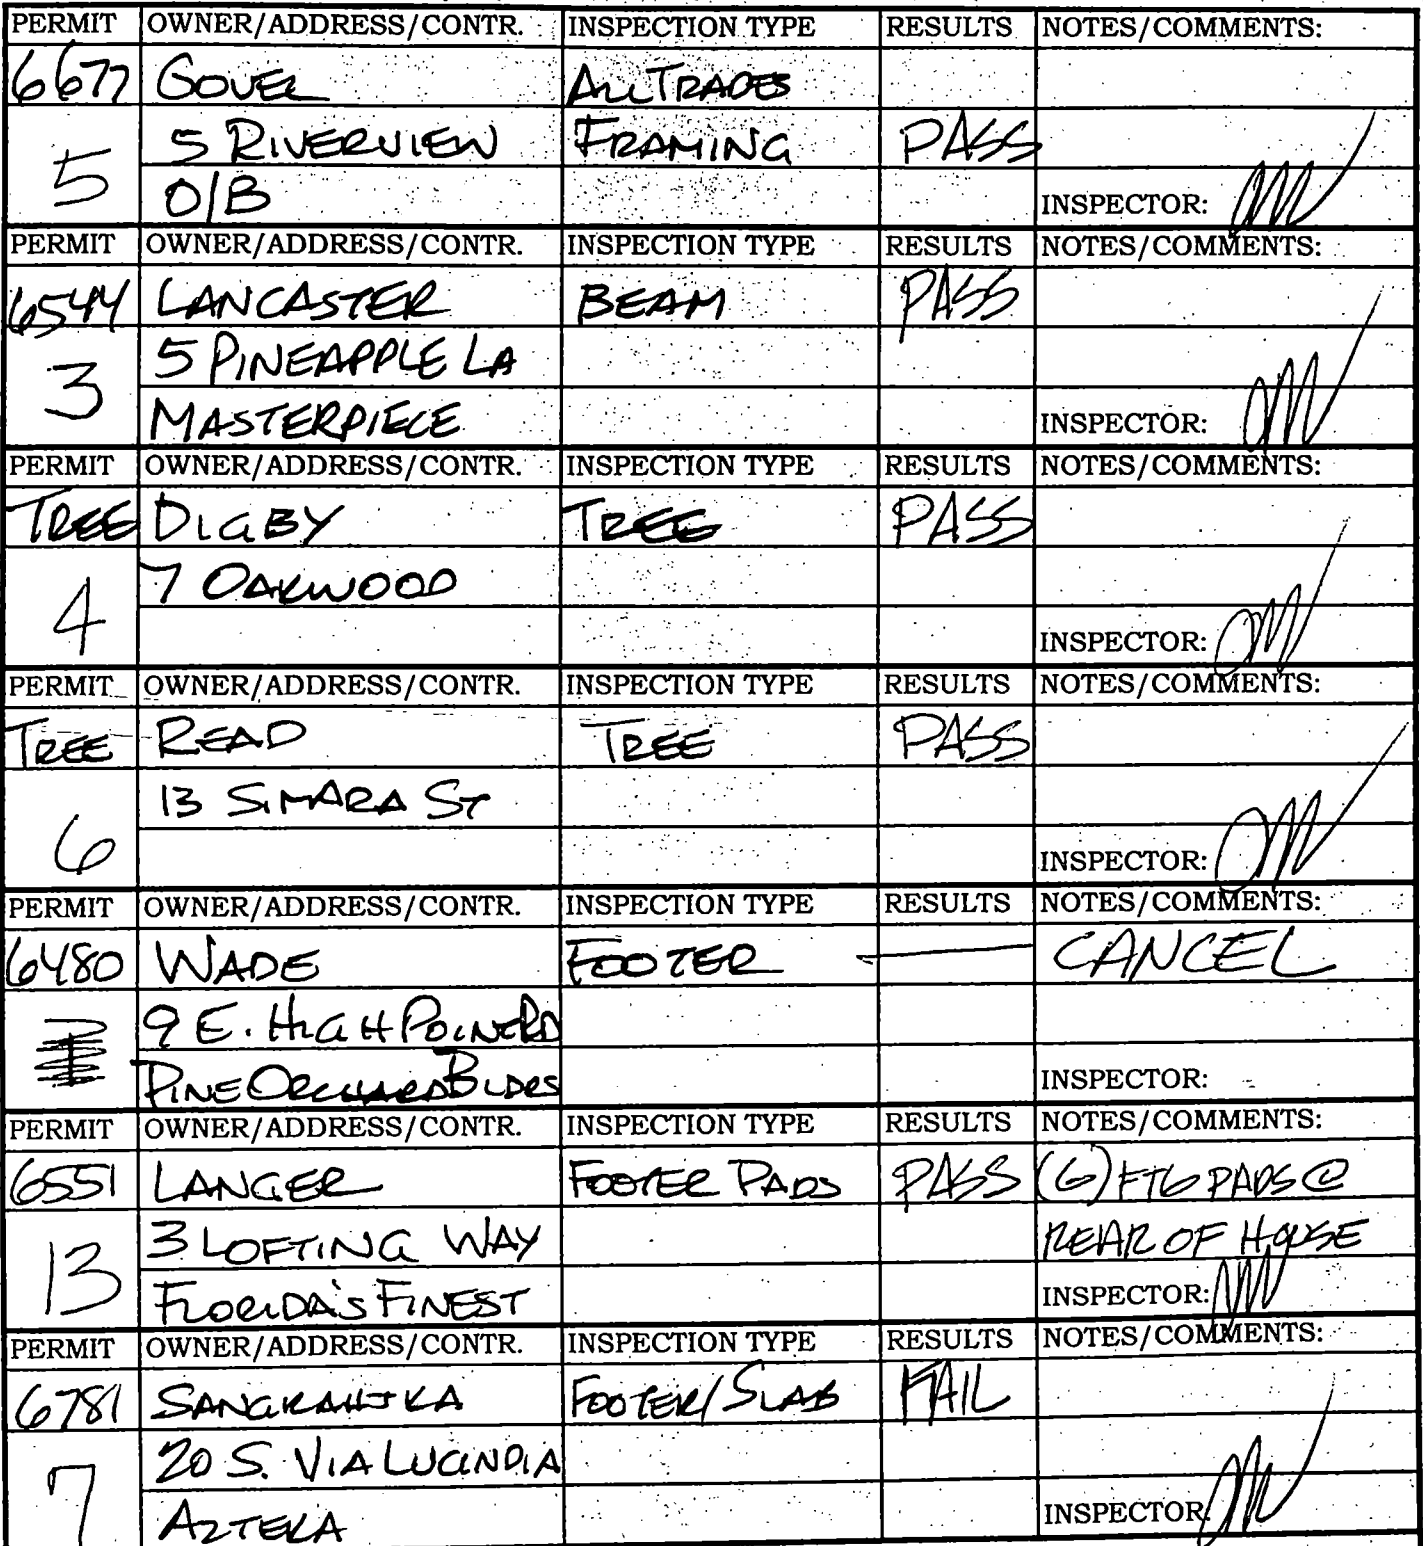 PERMIT OWNER/ADDRESS/CONTR. INSPECTION TYPE RESULTS NOTES/COMMENTS:
6677 GOVEL ALL TRADES
5 5 RIVERVIEW FRAMING PASS
O/B INSPECTOR:
PERMIT OWNER/ADDRESS/CONTR. INSPECTION TYPE RESULTS NOTES/COMMENTS:
6544 LANCASTER BEAM PASS
3 5 PINEAPPLE LA
MASTERPIECE INSPECTOR:
PERMIT OWNER/ADDRESS/CONTR. INSPECTION TYPE RESULTS NOTES/COMMENTS:
TREE DIGBY TREE PASS
4 7 OAKWOOD
INSPECTOR:
PERMIT OWNER/ADDRESS/CONTR. INSPECTION TYPE RESULTS NOTES/COMMENTS:
TREE READ TREE PASS
6 13 SIMARA ST
INSPECTOR:
PERMIT OWNER/ADDRESS/CONTR. INSPECTION TYPE RESULTS NOTES/COMMENTS:
6480 WADE FOOTER — CANCEL
9 E. HIGH POINT RD
PINE ORCHARD BLDRS INSPECTOR:
PERMIT OWNER/ADDRESS/CONTR. INSPECTION TYPE RESULTS NOTES/COMMENTS:
6551 LANGER FOOTER PADS PASS (6) FTG PADS @
13 3 LOFTING WAY REAR OF HOUSE
FLORIDA'S FINEST INSPECTOR:
PERMIT OWNER/ADDRESS/CONTR. INSPECTION TYPE RESULTS NOTES/COMMENTS:
6781 FOOTER/SLAB FAIL
7 20 S. VIA LUCINDIA
AZTEKA INSPECTOR: